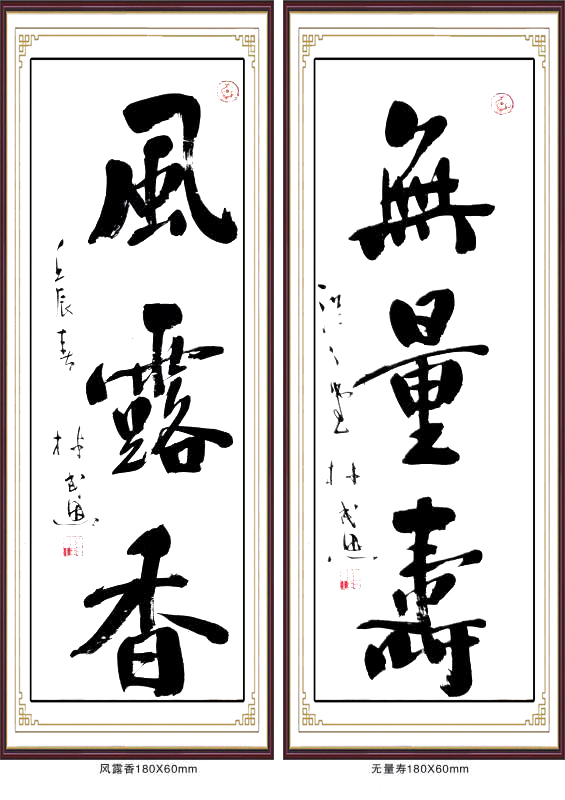 風露香
壬辰春
林武
風露香180X60mm
無量壽
林武
无量寿180X60mm